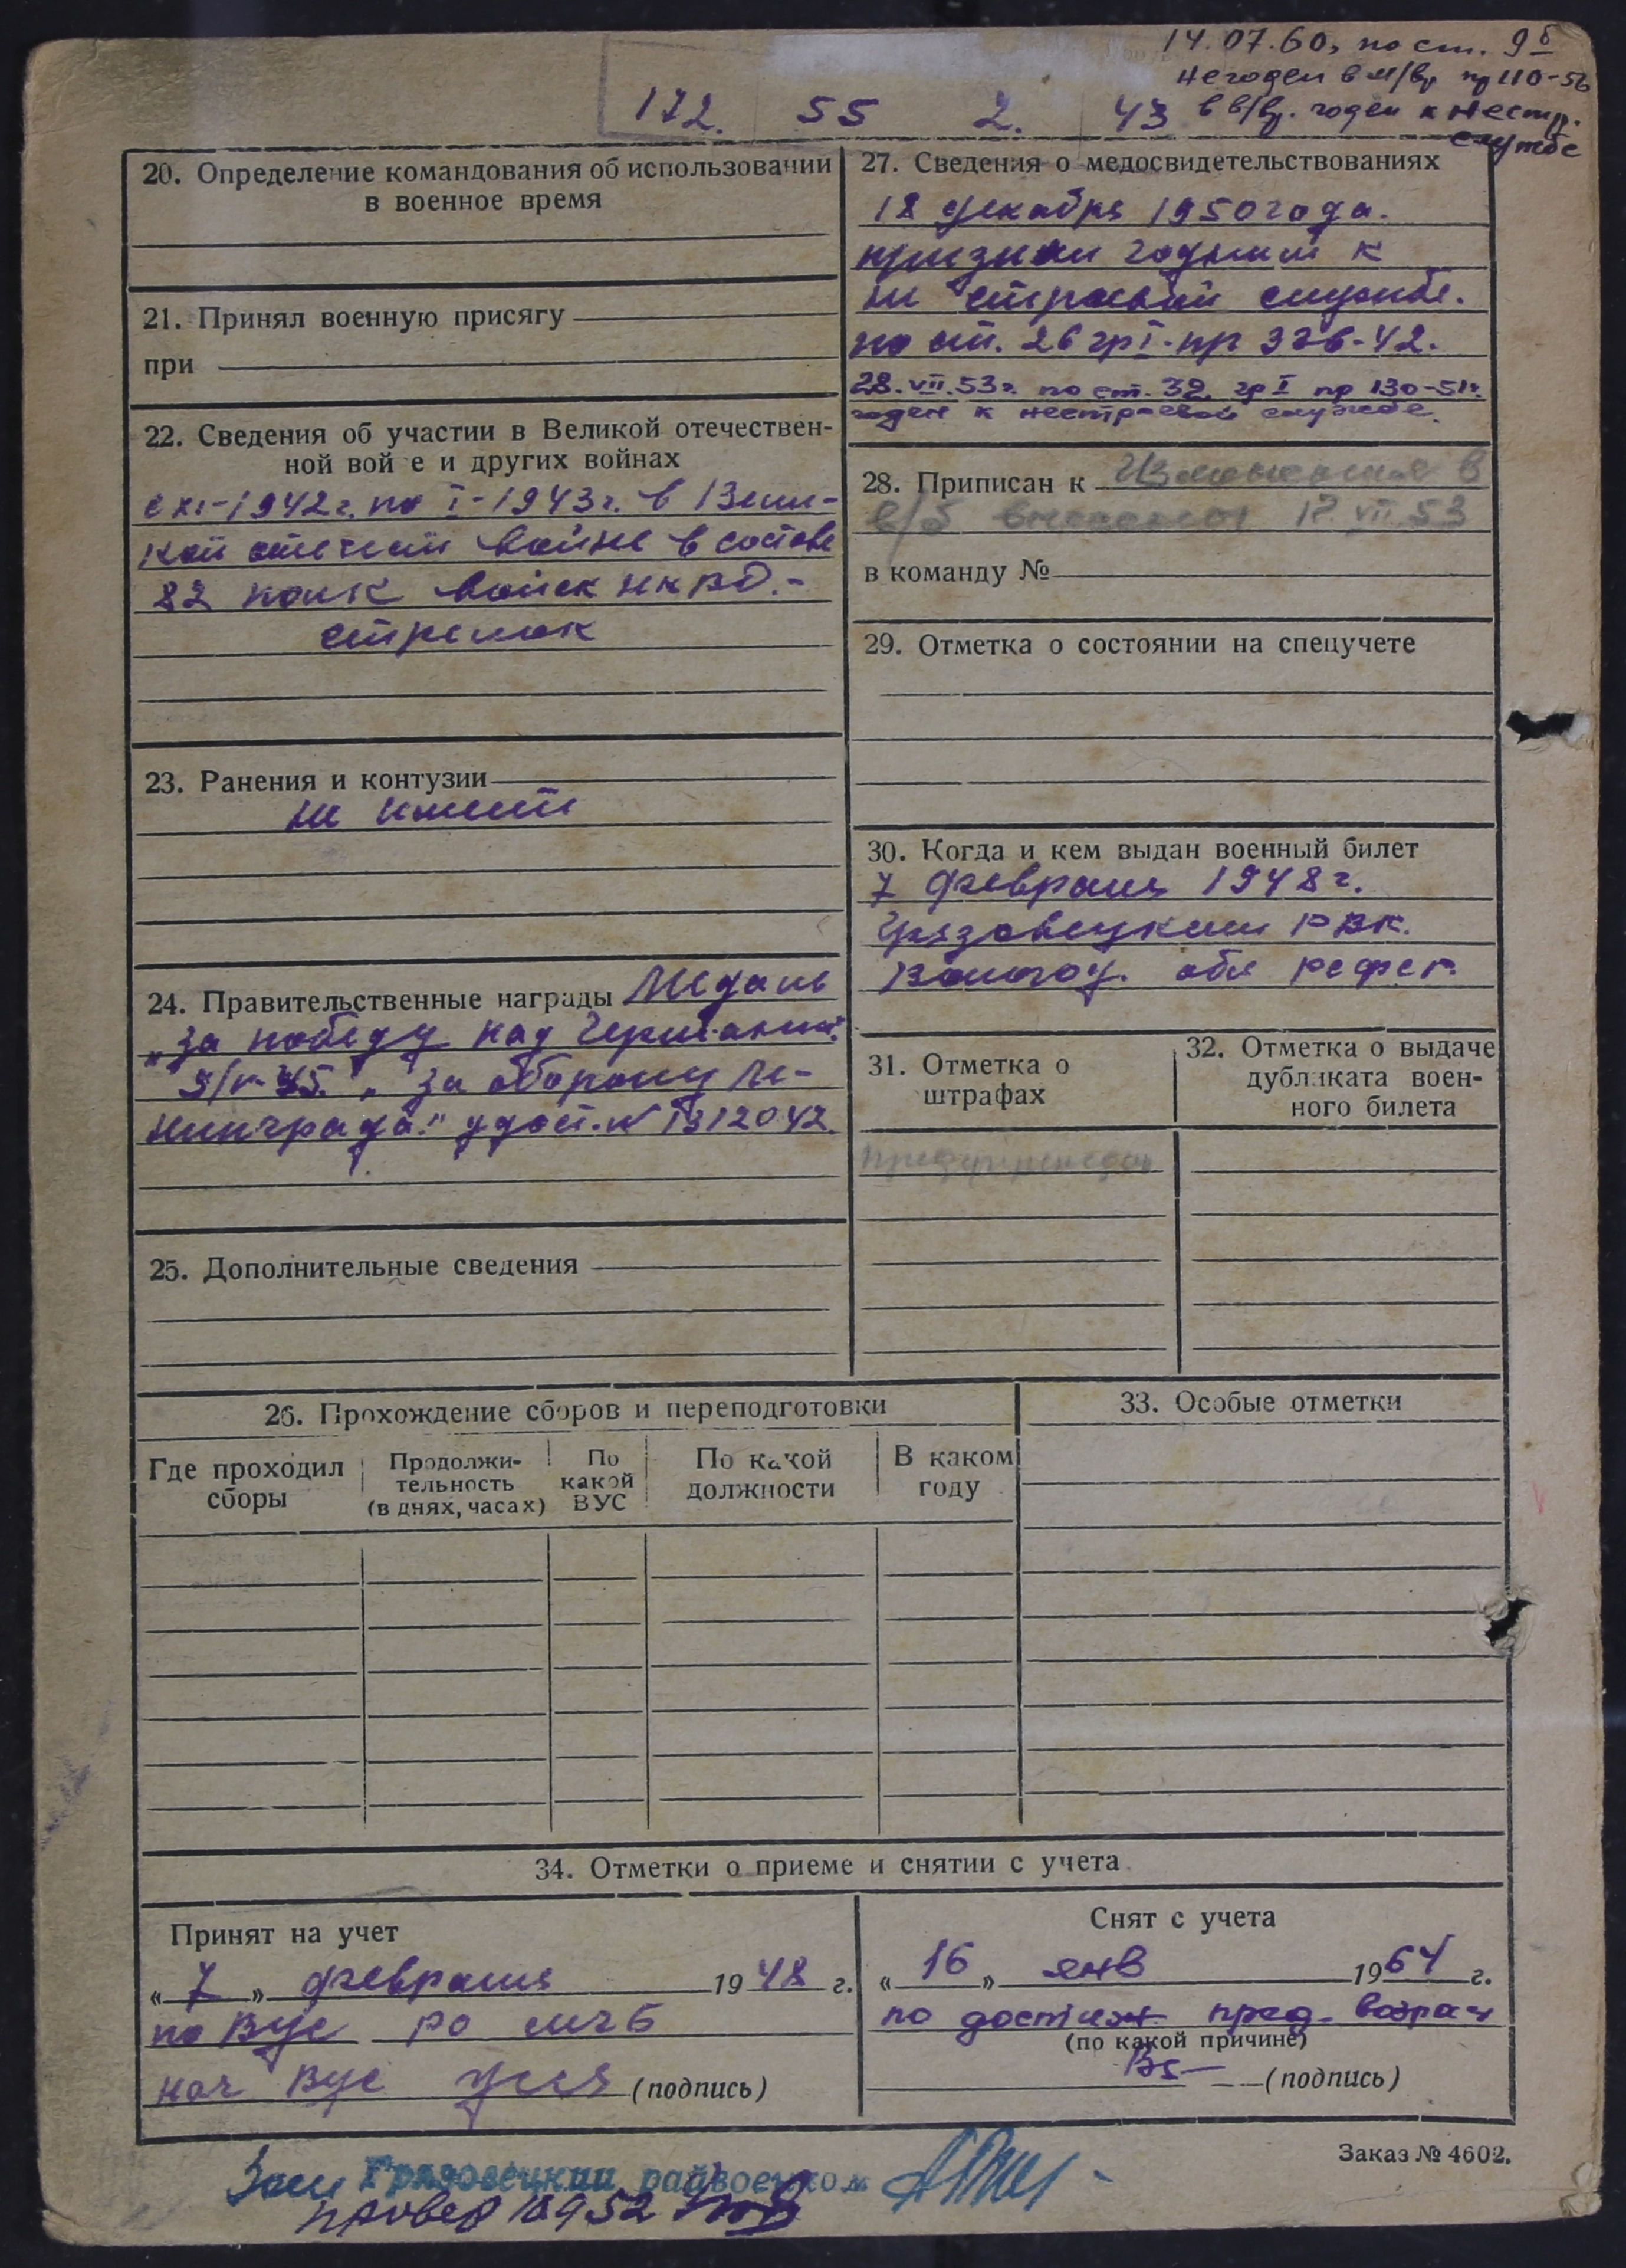 14.07.60, по ст. 9б
Негоден в м/вр пр 110-56
в в/вр. годен к нестр.
службе
172. 55 2. 43
20. Определение командования об использовании
в военное время
21. Принял военную присягу
при
22. Сведения об участии в Великой отечествен-
ной вой е и других войнах
с XI-1942г. по I-1943г. в Вели-
кой отечест войне в составе
82 полк войск НКВД.-
стрелок
23. Ранения и контузии
не имеет
24. Правительственные награды Медаль
„За победу над Германией"
9/V-45. „За оборону Ле-
нинграда." удост. №
25. Дополнительные сведения
26. Прохождение сборов и переподготовки
Где проходил
сборы
Продолжи-
тельность
(в днях, часах)
По
какой
ВУС
По какой
должности
В каком
году
27. Сведения о медосвидетельствованиях
18 декабря 1950 года.
признан годным к
не строевой службе.
по ст. 26 гр I. пр 336-42.
28.VII.53г. по ст. 32 гр I пр 130-51г.
годен к нестроевой службе.
28. Приписан к
12.VII.53
в команду №
29. Отметка о состоянии на спецучете
30. Когда и кем выдан военный билет
7 февраля 1948г.
Грязовецким РВК.
Вологод. обл
31. Отметка о
штрафах
предупрежден
32. Отметка о выдаче
дубликата воен-
ного билета
33. Особые отметки
34. Отметки о приеме и снятии с учета
Принят на учет
« 7 » февраля 1948 г.
по Вус
нач Вус (подпись)
Снят с учета
« 16 » янв 1964 г.
по достиж пред. возрас
(по какой причине)
(подпись)
Заказ № 4602.
Грязовецкий райвоенком
провер